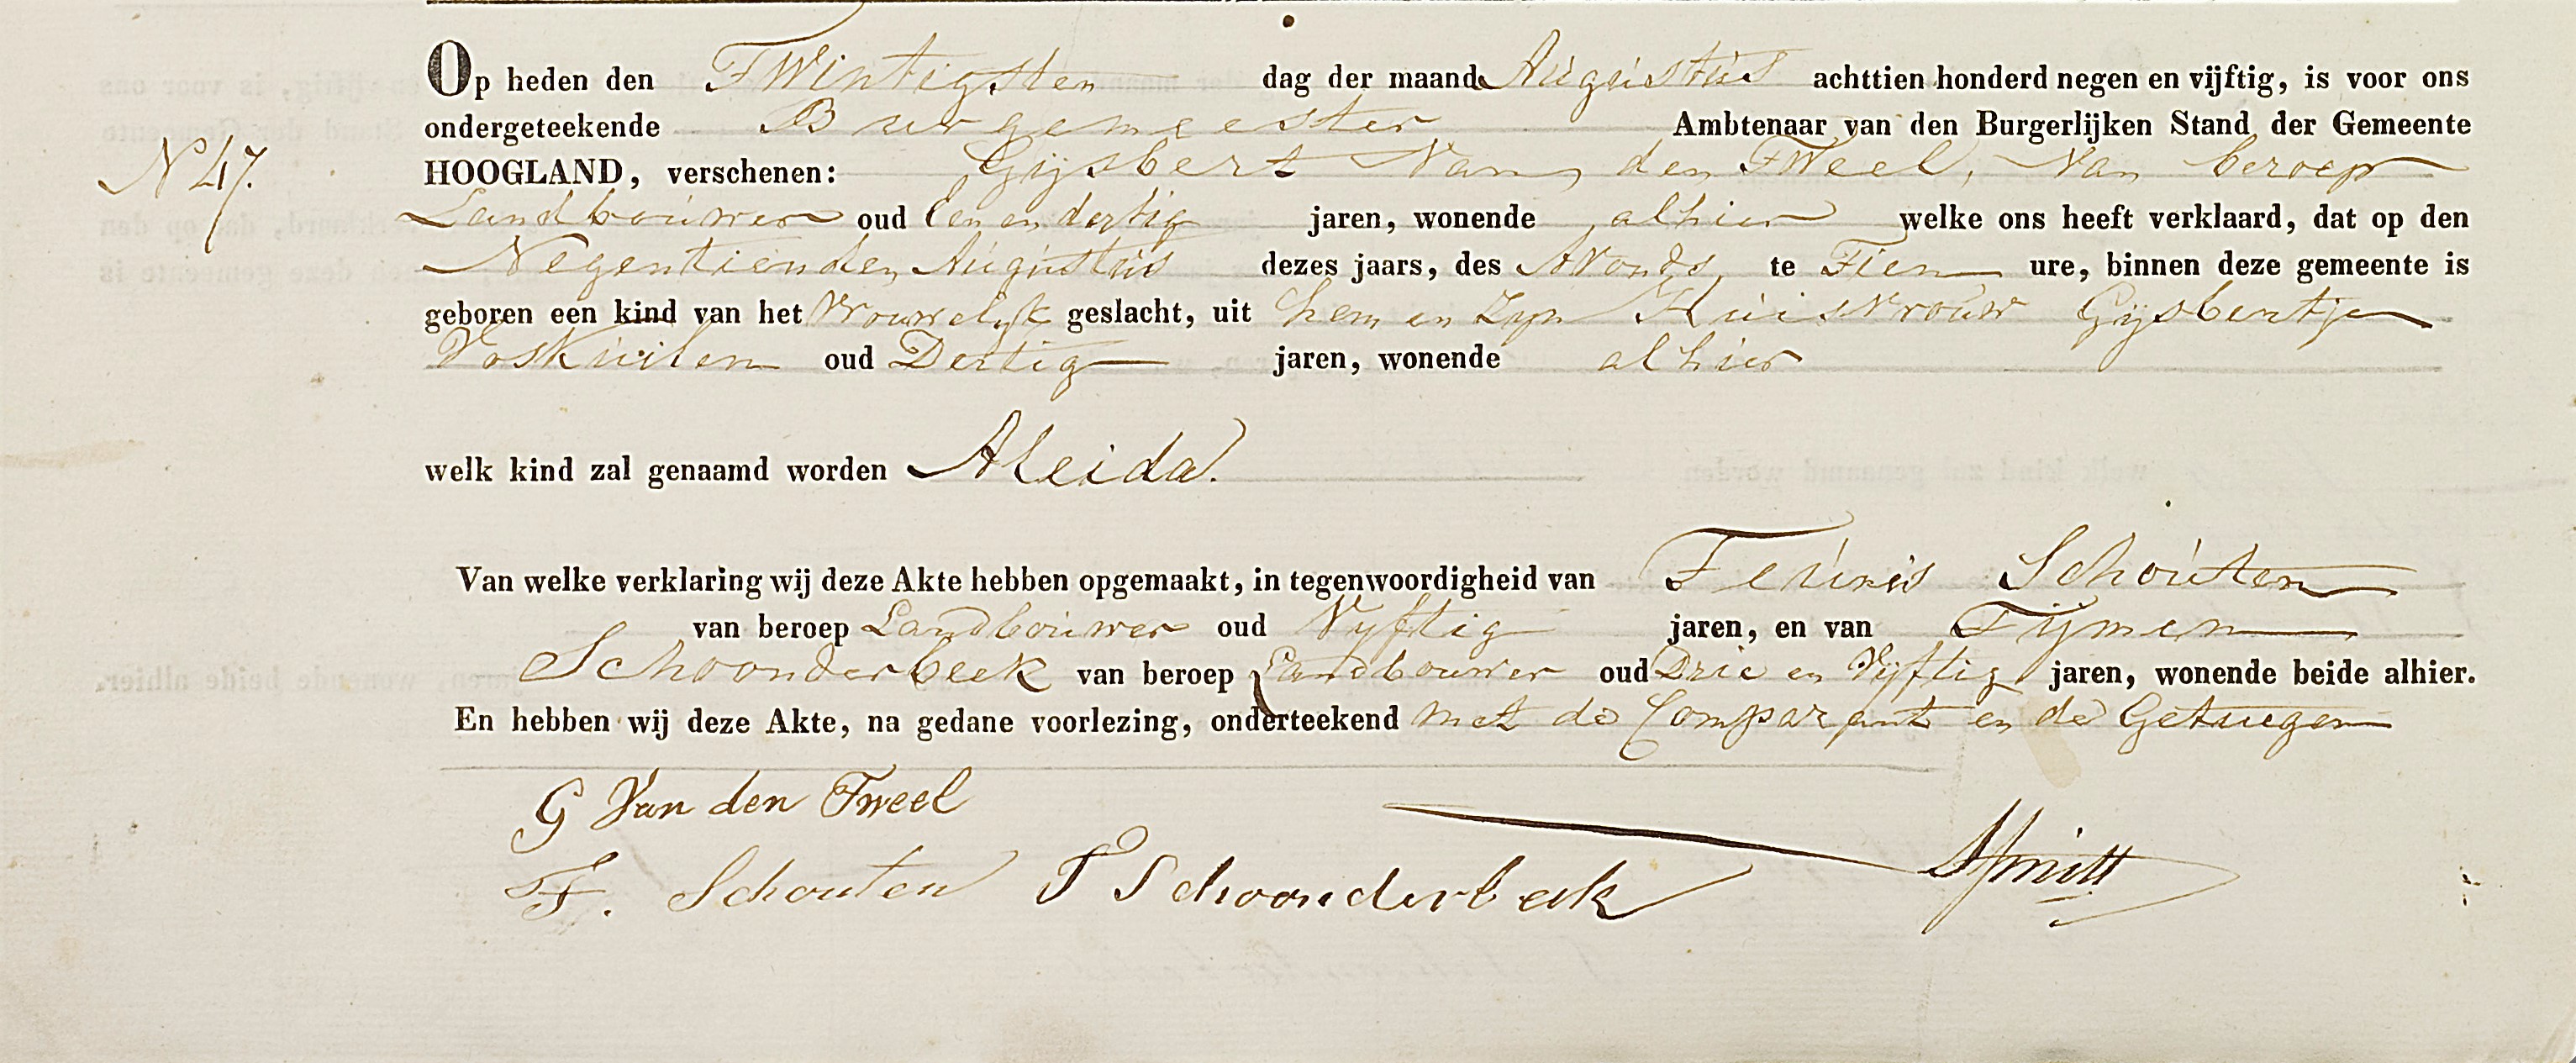 Op heden den Twintigsten dag der maand Augustus achttien honderd negen en vijftig, is voor ons
ondergeteekende Burgemeester Ambtenaar van den Burgerlijken Stand der Gemeente
N 47. HOOGLAND, verschenen: Gijsbert Van den Tweel, Van beroep
Landbouwer oud Een en dertig jaren, wonende alhier welke ons heeft verklaard, dat op den
Negentienden Augustus dezes jaars, des Avonds, te Tien ure, binnen deze gemeente is
geboren een kind van het Vrouwelyk geslacht, uit hem en Zyn HuisVrouw Gijsbertje
Voskuilen oud Dertig jaren, wonende alhier
welk kind zal genaamd worden Aleida.
Van welke verklaring wij deze Akte hebben opgemaakt, in tegenwoordigheid van Teunis Schouten
van beroep Landbouwer oud Vyftig jaren, en van Tijmen
Schoonderbeek van beroep Landbouwer oud Drie en Vijftig jaren, wonende beide alhier.
En hebben wij deze Akte, na gedane voorlezing, onderteekend met de Comparant en de Getuigen
G Van den Tweel
T. Schouten T Schoonderbeek